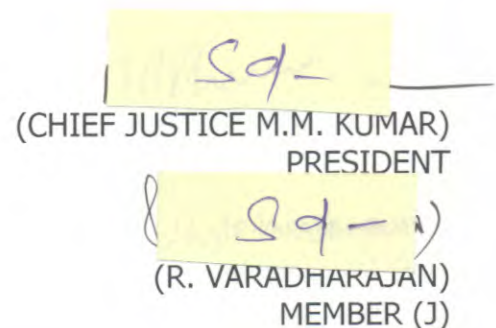 Sd-
(CHIEF JUSTICE M.M. KUMAR)
PRESIDENT
Sd-
(R. VARADHARAJAN)
MEMBER (J)